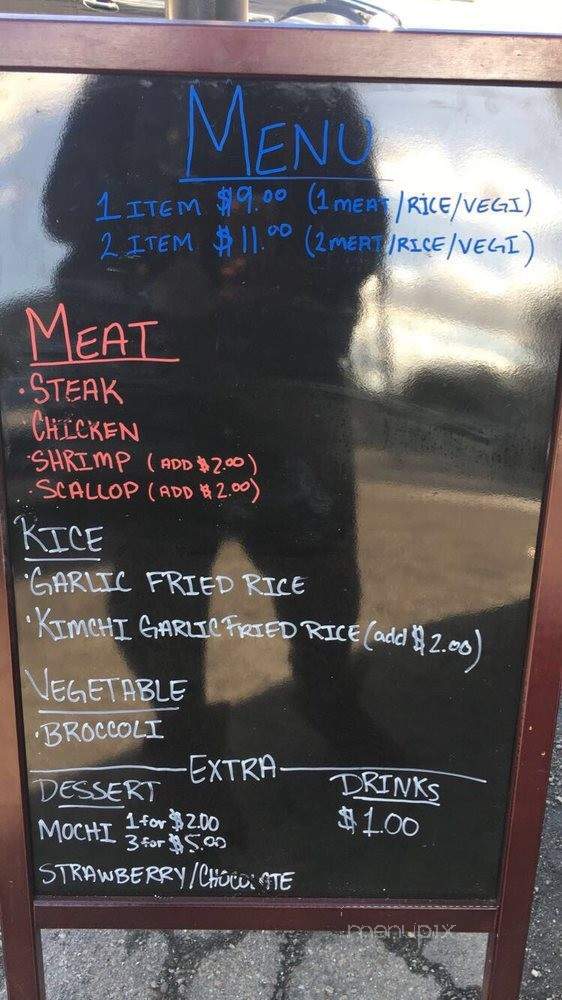 MENU
1 ITEM $9.00 (1 MEAT/RICE/VEGI)
2 ITEM $11.00 (2 MEAT/RICE/VEGI)
MEAT
·STEAK
·CHICKEN
·SHRIMP (ADD $2.00)
·SCALLOP (ADD $2.00)
RICE
·GARLIC FRIED RICE
·KIMCHI GARLIC FRIED RICE (add $2.00)
VEGETABLE
·BROCCOLI
EXTRA
DESSERT
MOCHI 1 for $2.00
3 for $5.00
STRAWBERRY/CHOCOLATE
DRINKS
$1.00
menupix